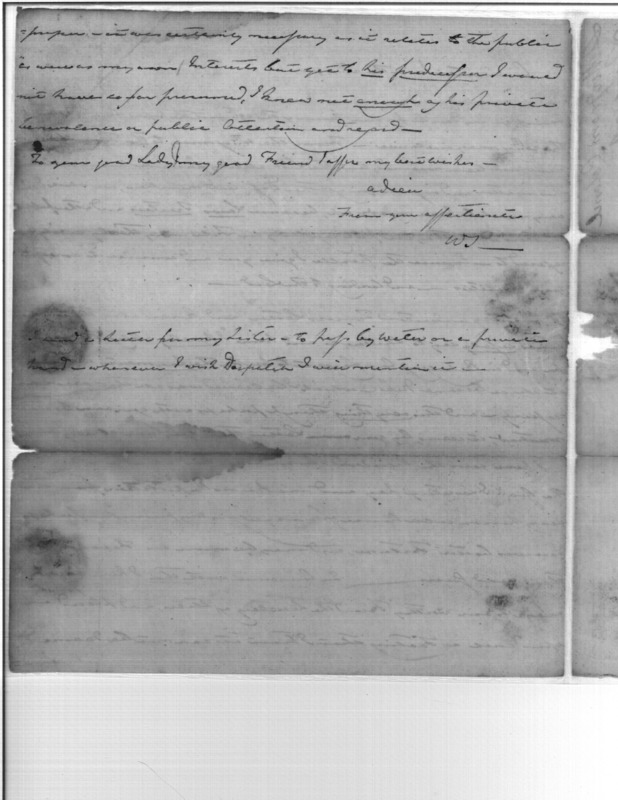 -proper - it was certainly necessary as it relates to the public
as well as my own Interests but yet to his predecessor I would
not have so far presumed, I knew not enough of his private
benevolence or public Attention and regard -
To your good Lady & my good Friend I offer my best wishes -
adieu
From your affectionate
WS
I send a Letter for my Sister - to pass by water or a private
hand - whenever I wish Despatch I will mention it -